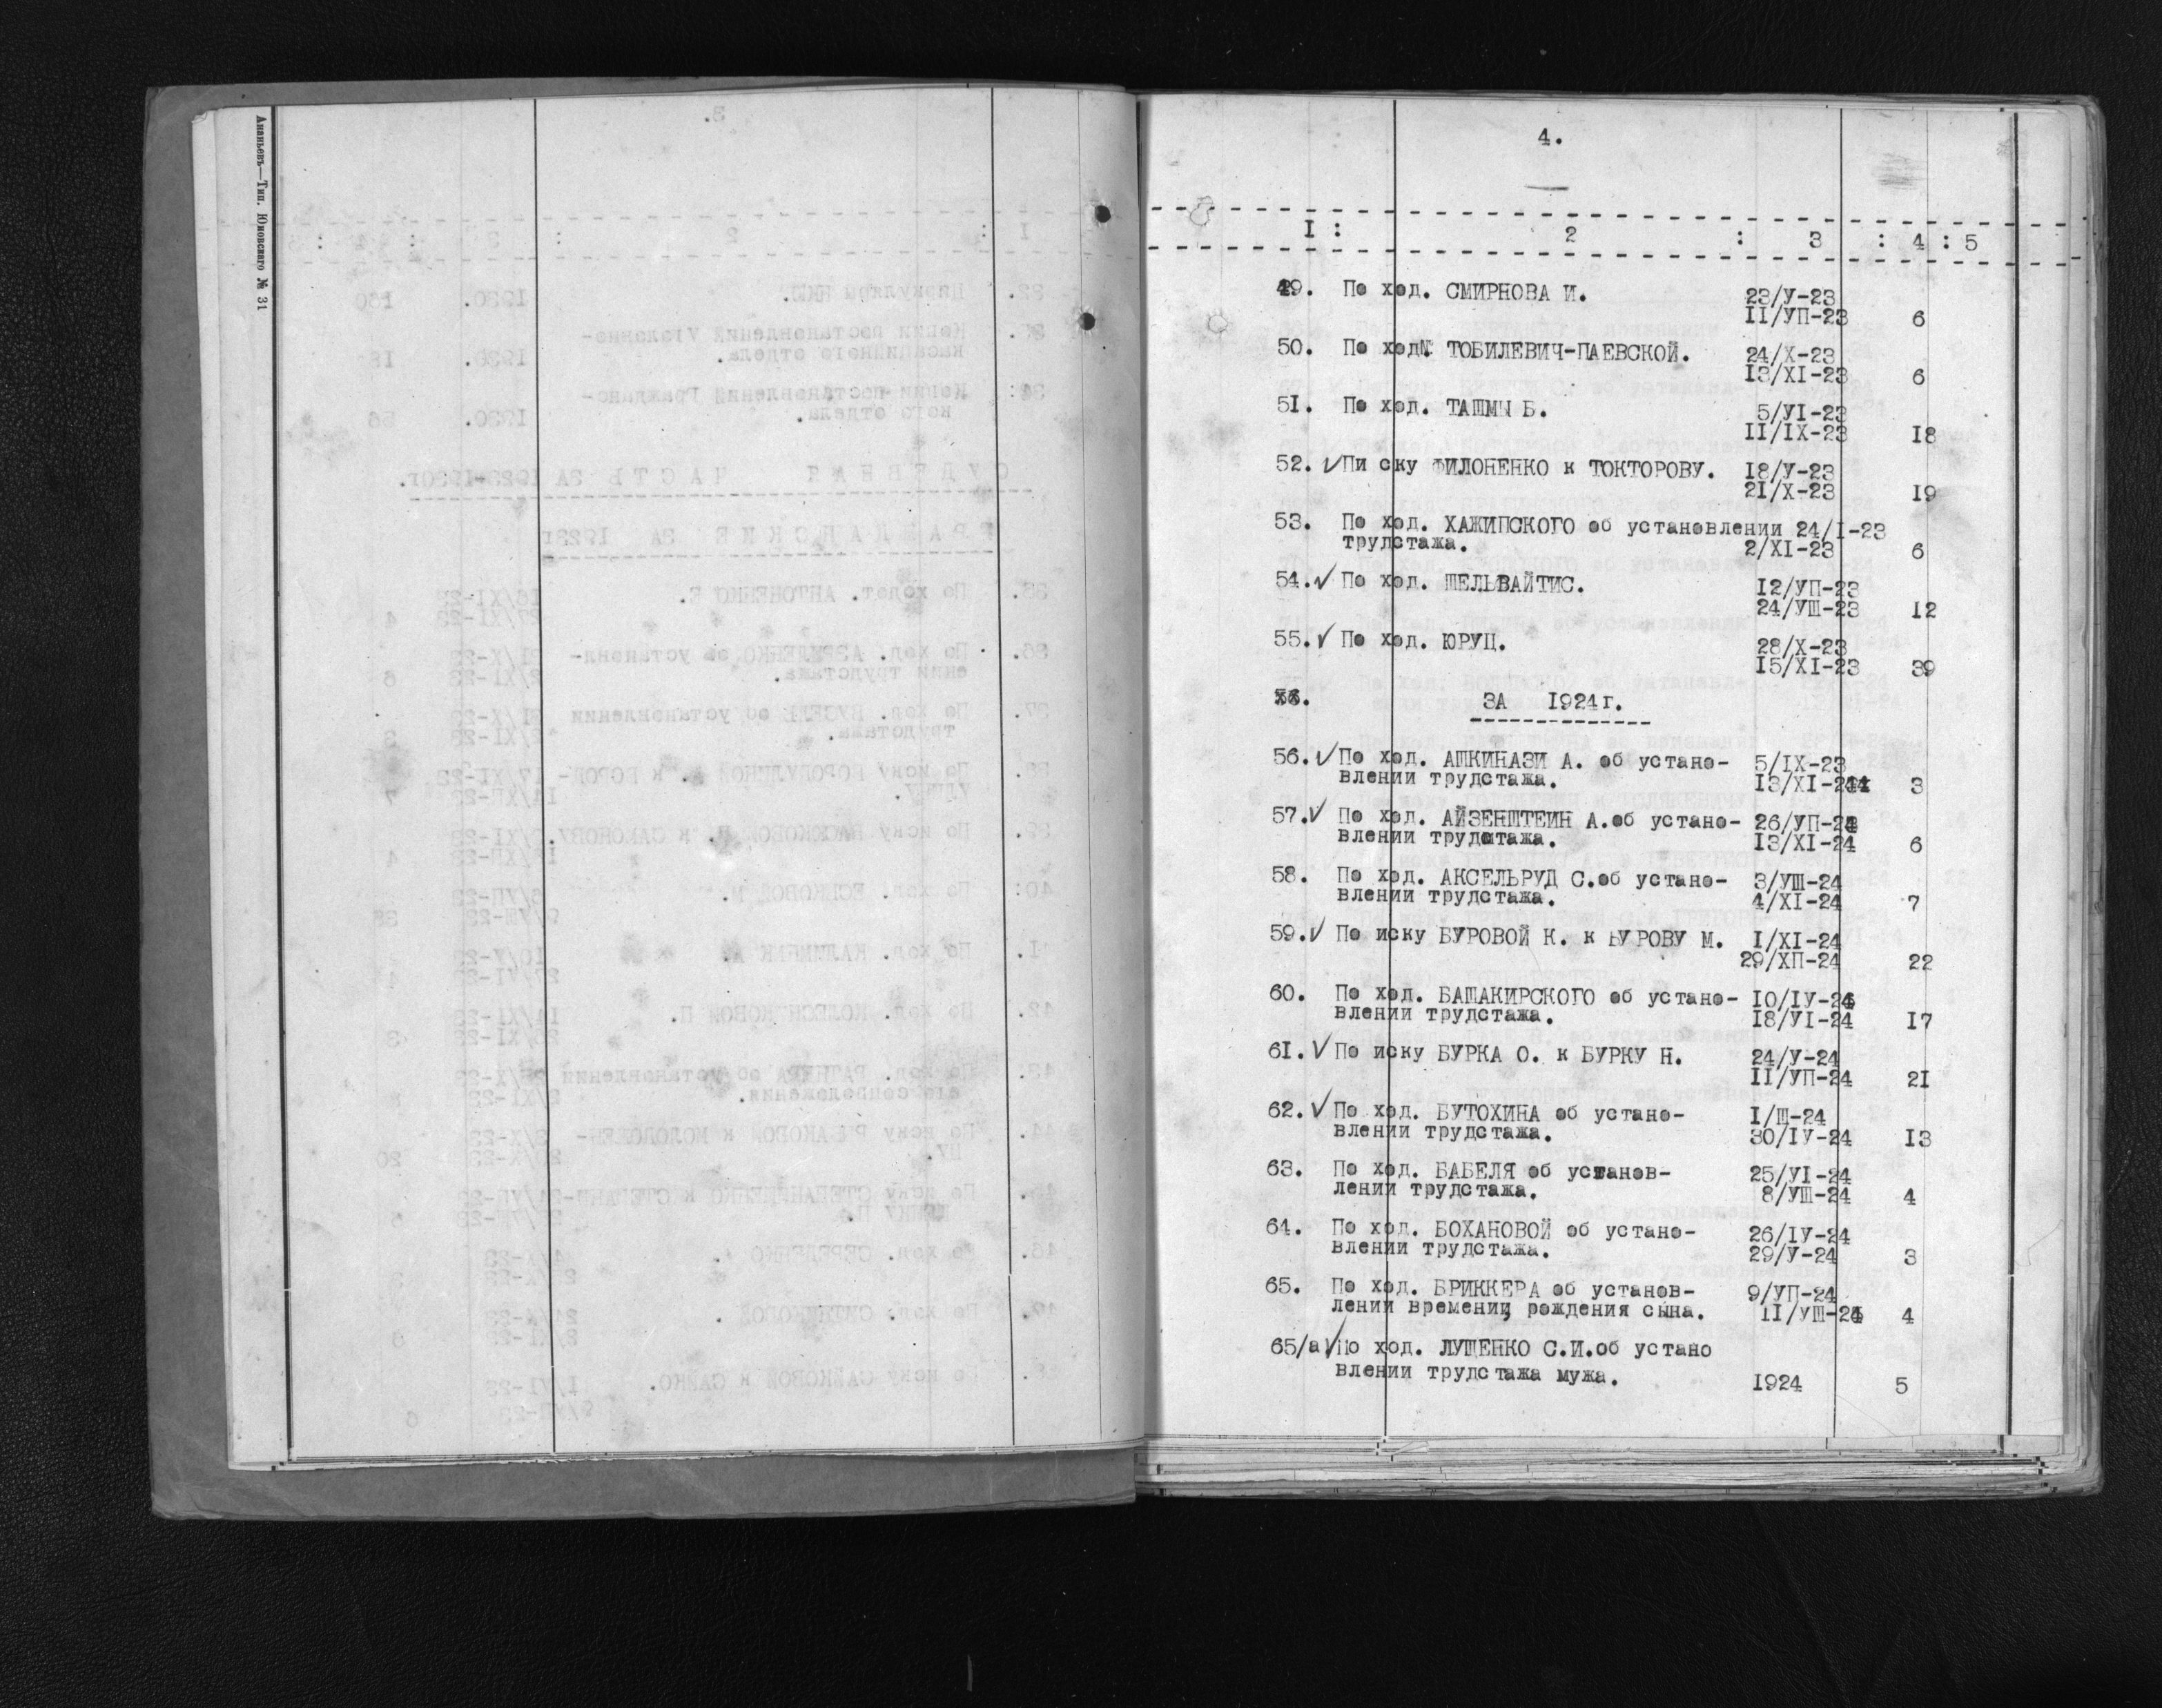 Ананьевъ—Тип. Юновскаго № 31
4.
I : 2 : 3 : 4 : 5
49. По ход. СМИРНОВА И. 23/У-23
II/УП-23 6
50. По ход. ТОБИЛЕВИЧ-ПАЕВСКОЙ. 24/X-23
I3/XI-23 6
5I. По ход. ТАШМЫ Б. 5/УI-23
II/IX-23 I8
52. √ Пи ску ФИЛОНЕНКО к ТОКТОРОВУ. I8/У-23
2I/X-23 I9
53. По ход. ХАЖИПСКОГО об установлении 24/I-23
трудстажа. 2/XI-23 6
54. √ По ход. ШЕЛЬВАЙТИС. I2/УП-23
24/УШ-23 I2
55. √ По ход. ЮРУЦ. 28/X-23
I5/XI-23 39
ЗА I924г.
56. √ По ход. АШКИНАЗИ А. об устано- 5/IX-23
влении трудстажа. I3/XI-24 3
57. √ По ход. АЙЗЕНШТЕИН А.об устано- 26/УП-24
влении трудстажа. I3/XI-24 6
58. По ход. АКСЕЛЬРУД С.об устано- 3/УШ-24
влении трудстажа. 4/XI-24 7
59. √ По иску БУРОВОЙ К. к БУРОВУ М. I/XI-24
29/ХП-24 22
60. По ход. БАШАКИРСКОГО об устано- I0/IУ-24
влении трудстажа. I8/УI-24 I7
6I. √ По иску БУРКА О. к БУРКУ Н. 24/У-24
II/УП-24 2I
62. √ По ход. БУТОХИНА об устано- I/Ш-24
влении трудстажа. 30/IУ-24 I3
63. По ход. БАБЕЛЯ об установ- 25/УI-24
лении трудстажа. 8/УШ-24 4
64. По ход. БОХАНОВОЙ об устано- 26/IУ-24
влении трудстажа. 29/У-24 3
65. По ход. БРИККЕРА об установ- 9/УП-24
лении времении, рождения сына. II/УШ-24 4
65/а √ По ход. ЛУЩЕНКО С.И.об устано
влении трудстажа мужа. I924 5